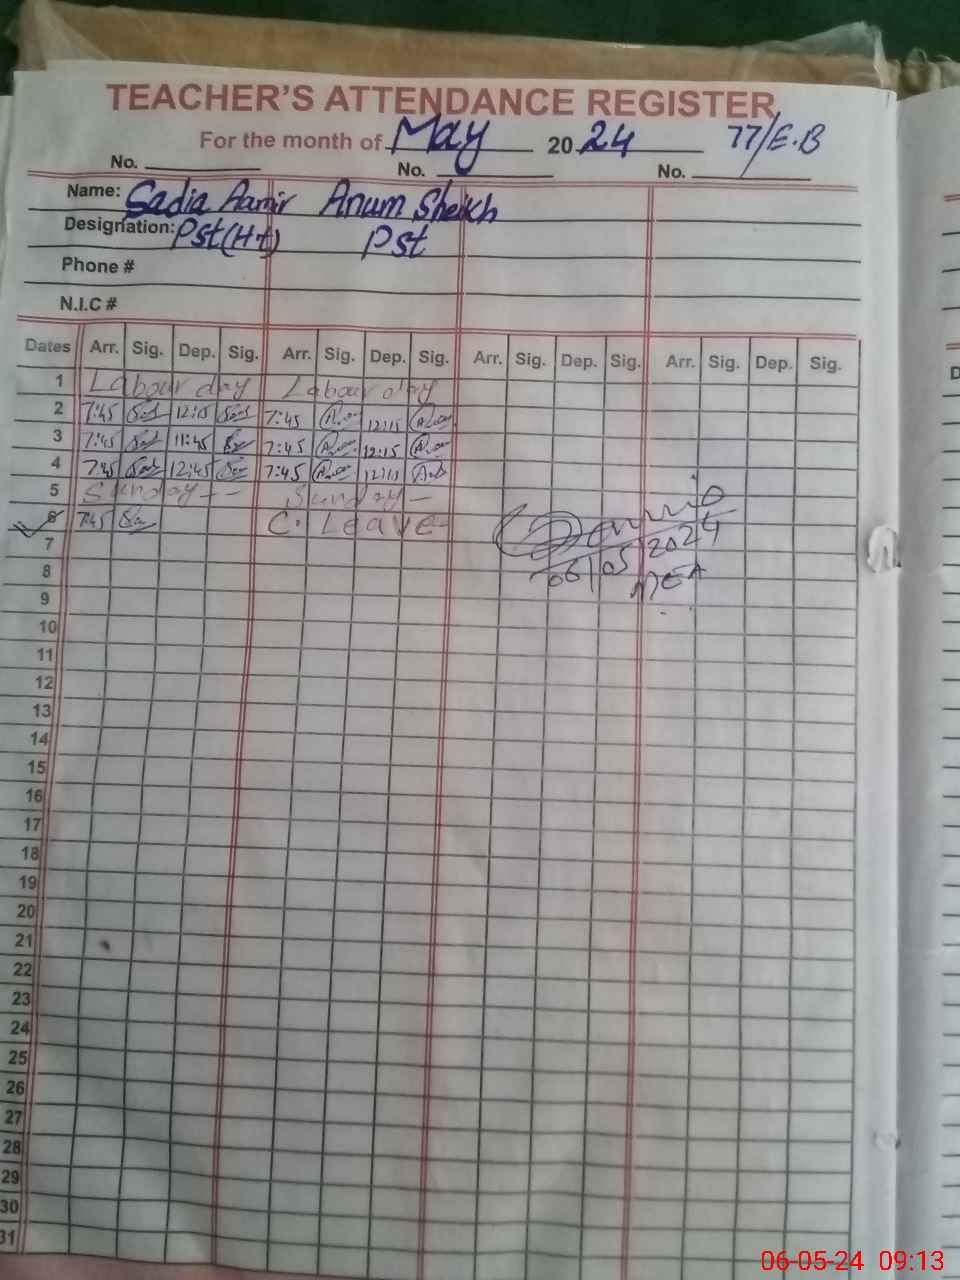 TEACHER'S ATTENDANCE REGISTER
For the month of May 2024 77/E.B
No. No. No.
Name: Sadia Aamir Anum Sheikh
Designation: Pst(Ht) Pst
Phone #
N.I.C #
Dates Arr. Sig. Dep. Sig. Arr. Sig. Dep. Sig. Arr. Sig. Dep. Sig. Arr. Sig. Dep. Sig.
1 Labour day Labour day
2 7:45 12:15 7:45 12:15
3 7:45 11:45 7:45 12:15
4 7:45 12:45 7:45 12:15
5 Sunday-- Sunday-
6 7:45 C. Leave
7
06/05/2024
8
MEA
9
10
11
12
13
14
15
16
17
18
19
20
21
22
23
24
25
26
27
28
29
30
31
06-05-24 09:13